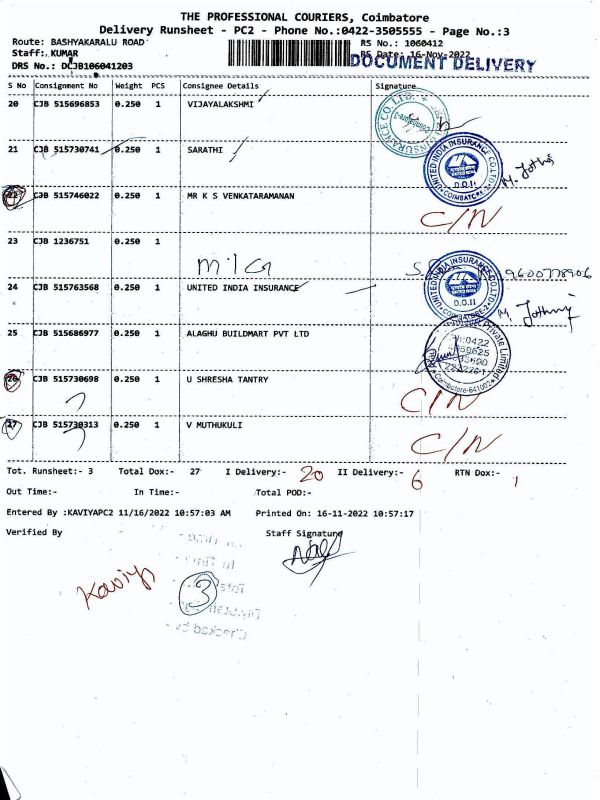 THE PROFESSIONAL COURIERS, Coimbatore
Delivery Runsheet - PC2 - Phone No.:0422-3505555 - Page No.:3
Route: BASHYAKARALU ROAD RS No.: 1060412
Staff: KUMAR RS Date: 16-Nov-2022
DOCUMENT DELIVERY
DRS No.: DCJB106041203
S No Consignment No Weight PCS Consignee Details Signature
20 CJB 515696853 0.250 1 VIJAYALAKSHMI
21 CJB 515730741 0.250 1 SARATHI
UNITED INDIA INSURANCE CO.LTD. D.O.II COIMBATORE-2
M. Jothi
22 CJB 515746022 0.250 1 MR K S VENKATARAMANAN
C/N
23 CJB 1236751 0.250 1
9600778906
24 CJB 515763568 0.250 1 UNITED INDIA INSURANCE
UNITED INDIA INSURANCE CO.LTD. D.O.II COIMBATORE-2
25 CJB 515686977 0.250 1 ALAGHU BUILDMART PVT LTD
Private Limited
Coimbatore-641002
26 CJB 515730698 0.250 1 U SHRESHA TANTRY
C/N
27 CJB 515730313 0.250 1 V MUTHUKULI
C/N
Tot. Runsheet:- 3 Total Dox:- 27 I Delivery:- 20 II Delivery:- 6 RTN Dox:- 1
Out Time:- In Time:- Total POD:-
Entered By :KAVIYAPC2 11/16/2022 10:57:03 AM Printed On: 16-11-2022 10:57:17
Verified By Staff Signature
Kaviya
3